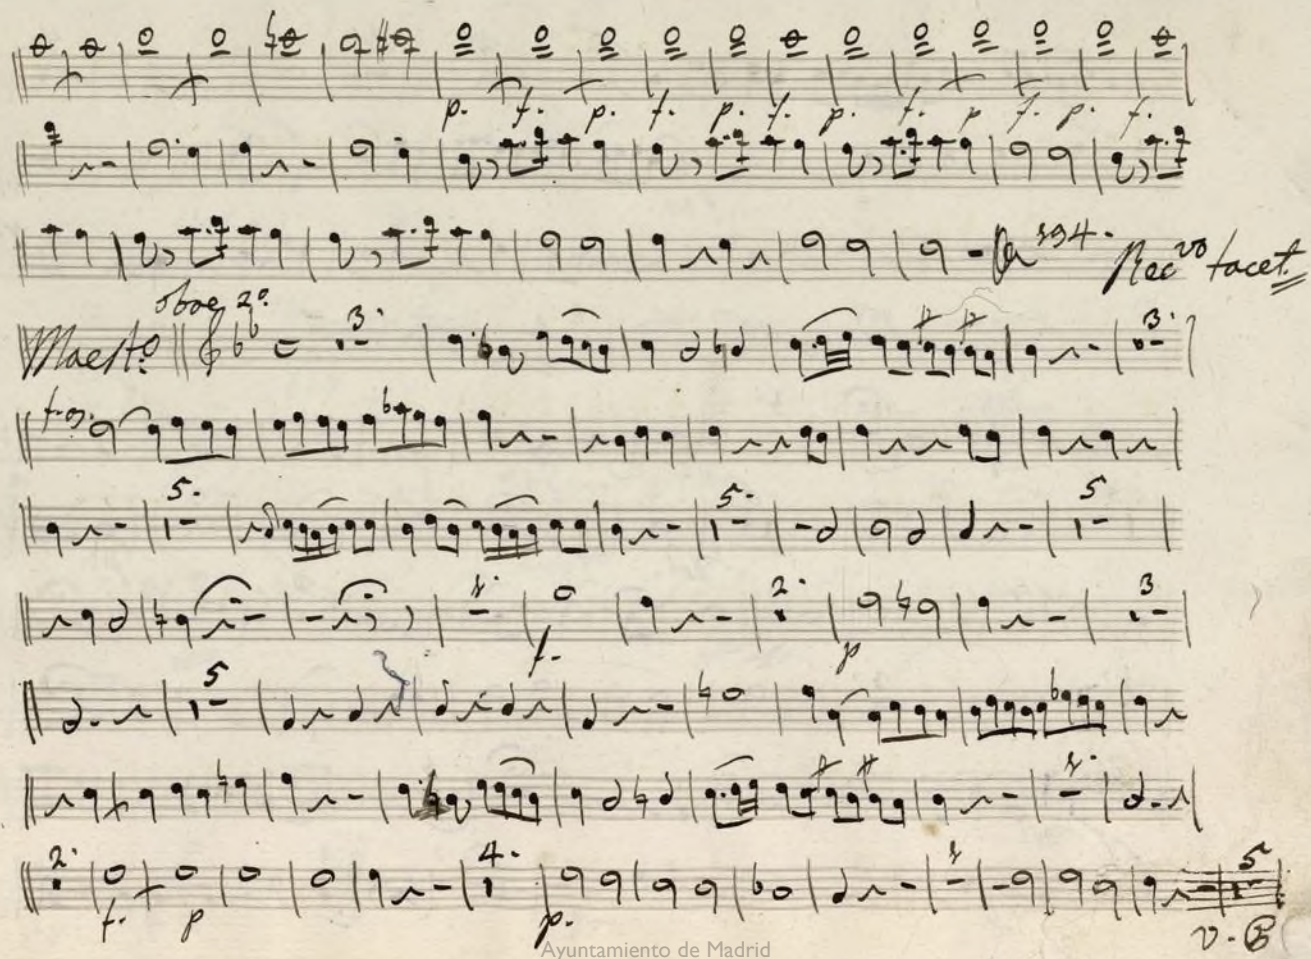 p. f. p. f. p. f. p. f. p f. p. f.
194. Rec vo tacet.
oboe 2º.
Maestº 3. 3.
5. 5. 5
2. 3
f. p
5
2. 4. 5
f. p p.
v.
Ayuntamiento de Madrid